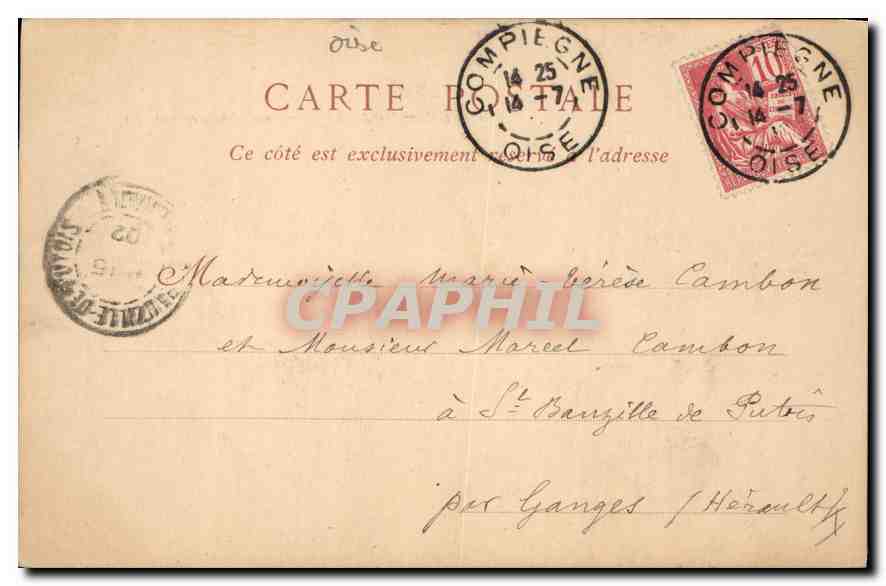 oise
COMPIEGNE
14 25
14 -7
OISE
10
COMPIEGNE
14 25
14 -7
OISE
CARTE POSTALE
Ce côté est exclusivement réservé à l'adresse
BAUZILLE-DE-PUTOIS
02
Mademoiselle Marie Térèse Cambon
CPAPHIL
et Monsieur Marcel Cambon
à St Bauzille de Putois
par Ganges (Hérault)